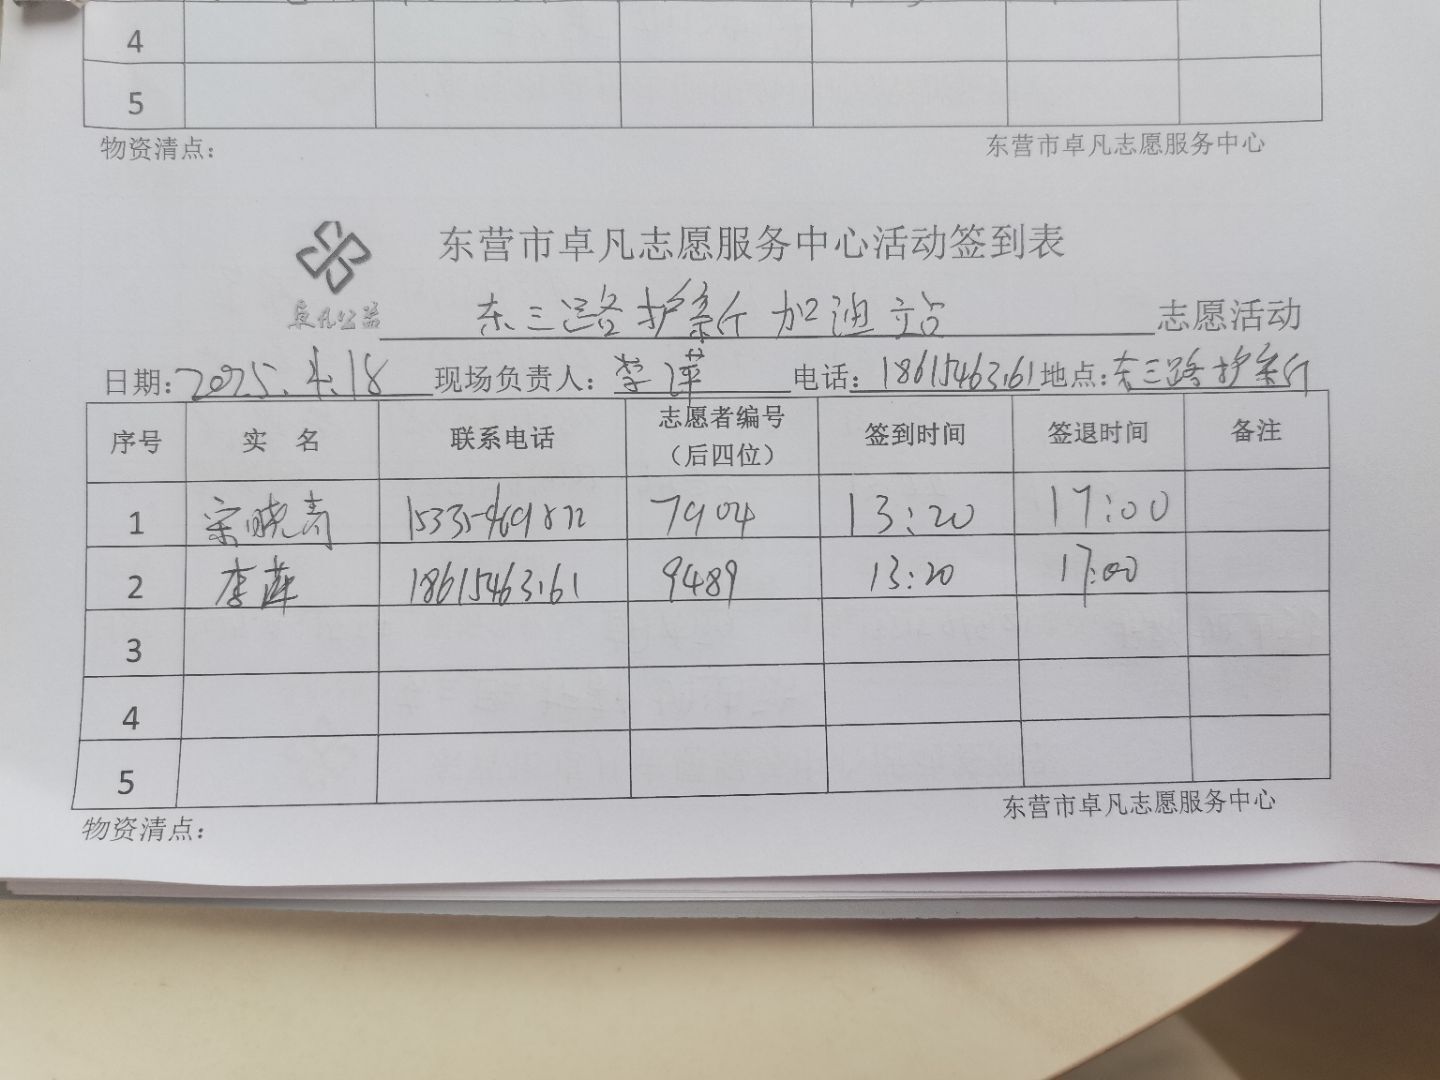 4
5
物资清点：
东营市卓凡志愿服务中心
东营市卓凡志愿服务中心活动签到表
卓凡公益
东三路护新厅加油站 志愿活动
日期：2025.4.18 现场负责人：李萍 电话：18615463161 地点：东三路护新厅
序号 实 名 联系电话 志愿者编号（后四位） 签到时间 签退时间 备注
1 宋晓青 15335469872 7904 13:20 17:00
2 李萍 18615463161 9489 13:20 17:00
3
4
5
物资清点：
东营市卓凡志愿服务中心